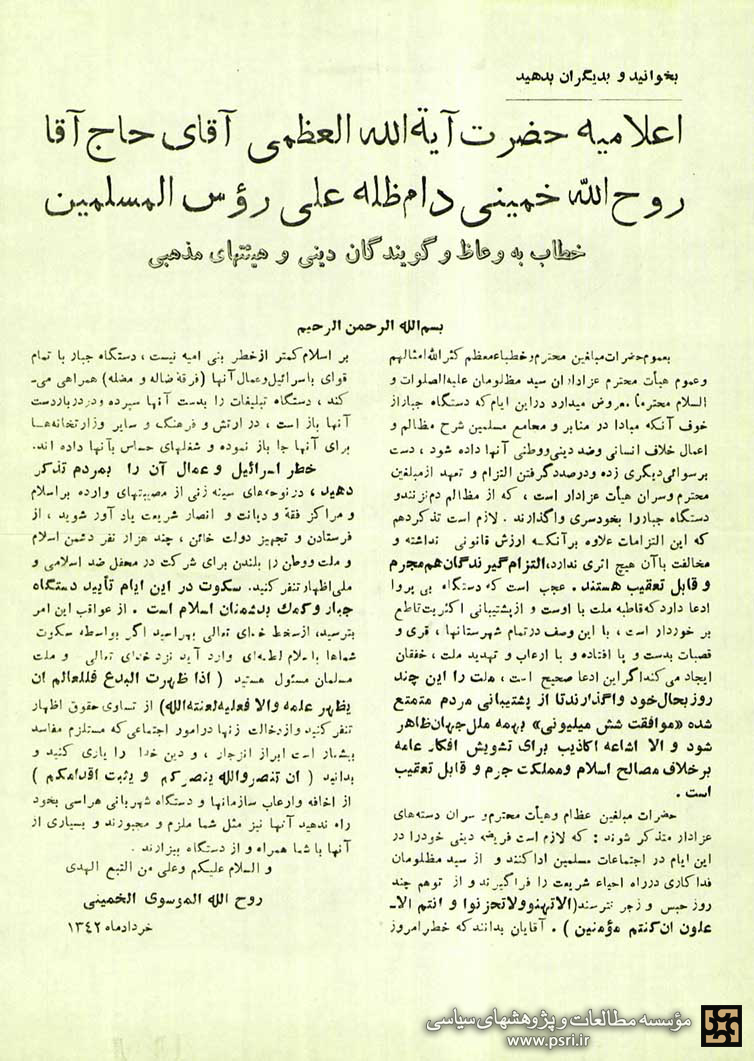 بخوانید و بدیگران بدهید
اعلامیه حضرت آیةالله العظمی آقای حاج آقا
روح الله خمینی دام ظله علی رؤس المسلمین
خطاب به وعاظ و گویندگان دینی و هیئتهای مذهبی
بسم الله الرحمن الرحیم
بعموم حضرات مبلغین محترم و خطباء معظم کثر الله امثالهم
و عموم هیأت محترم عزاداران سید مظلومان علیه الصلوات و
السلام محترماً معروض میدارد در این ایام که دستگاه جبار از
خوف آنکه مبادا در منابر و مجامع مسلمین شرح مظالم و
اعمال خلاف انسانی و ضد دینی و وطنی آنها داده شود ، دست
برسوائی دیگری زده و درصدد گرفتن التزام و تعهد از مبلغین
محترم و سران هیأت عزادار است ، که از مظالم دم نزنند و
دستگاه جبار را بخودسری واگذارند . لازم است تذکر دهم
که این التزامات علاوه بر آنکه ارزش قانونی نداشته و
مخالفت با آن هیچ اثری ندارد، التزام گیرندگان هم مجرم
و قابل تعقیب هستند . عجب است که دستگاه بی پروا
ادعا دارد که قاطبه ملت با اوست و از پشتیبانی اکثریت قاطع
بر خوردار است ، با این وصف در تمام شهرستانها ، قری و
قصبات بدست و پا افتاده و با ارعاب و تهدید ملت ، خفقان
ایجاد می کند اگر این ادعا صحیح است ، ملت را این چند
روز بحال خود واگذارند تا از پشتیبانی مردم متمتع
شده «موافقت شش میلیونی» بهمه ملل جهان ظاهر
شود و الا اشاعه اکاذیب برای تشویش افکار عامه
بر خلاف مصالح اسلام و مملکت جرم و قابل تعقیب
است .
حضرات مبلغین عظام و هیأت محترم و سران دسته های
عزادار متذکر شوند : که لازم است فریضه دینی خود را در
این ایام در اجتماعات مسلمین ادا کنند و از سید مظلومان
فداکاری در راه احیاء شریعت را فرا گیرند و از توهم چند
روز حبس و زجر نترسند (الا تهنو ولا تحزنوا و انتم الا-
علون ان کنتم مؤمنین ) . آقایان بدانند که خطر امروز
بر اسلام کمتر از خطر بنی امیه نیست ، دستگاه جبار با تمام
قوای باسرائیل و عمال آنها (فرقهٔ ضاله و مضله) همراهی می-
کند ، دستگاه تبلیغات را بدست آنها سپرده و در دربار دست
آنها باز است ، در ارتش و فرهنگ و سایر وزارتخانه ها
برای آنها جا باز نموده و شغلهای حساس بآنها داده اند.
خطر اسرائیل و عمال آن را بمردم تذکر
دهید ، در نوحه های سینه زنی از مصیبتهای وارده بر اسلام
و مراکز فقه و دیانت و انصار شریعت یاد آور شوید ، از
فرستادن و تجهیز دولت خائن ، چند هزار نفر دشمن اسلام
و ملت و وطن را بلندن برای شرکت در محفل ضد اسلامی و
ملی اظهار تنفر کنید. سکوت در این ایام تأیید دستگاه
جبار و کمك بدشمنان اسلام است . از عواقب این امر
بترسید، از سخط خدای تعالی بهراسید اگر بواسطه سکوت
شماها باسلام لطمه ای وارد آید نزد خدای تعالی و ملت
مسلمان مسئول هستید ( اذا ظهرت البدع فللعالم ان
یظهر علمه والا فعلیه لعنته الله) از تساوی حقوق اظهار
تنفر کنید و از دخالت زنها در امور اجتماعی که مستلزم مفاسد
بیشمار است ابراز انزجار ، و دین خدا را یاری کنید و
بدانید ( ان تنصروالله ینصرکم و یثبت اقدامکم )
از اخافه و ارعاب سازمانها و دستگاه شهربانی هراسی بخود
راه ندهید آنها نیز مثل شما ملزم و مجبورند و بسیاری از
آنها با شما همراه و از دستگاه بیزارند .
و السلام علیکم و علی من التبع الهدی
روح الله الموسوی الخمینی
خرداد ماه ۱۳۴۲
مؤسسه مطالعات و پژوهشهای سیاسی
www.psri.ir